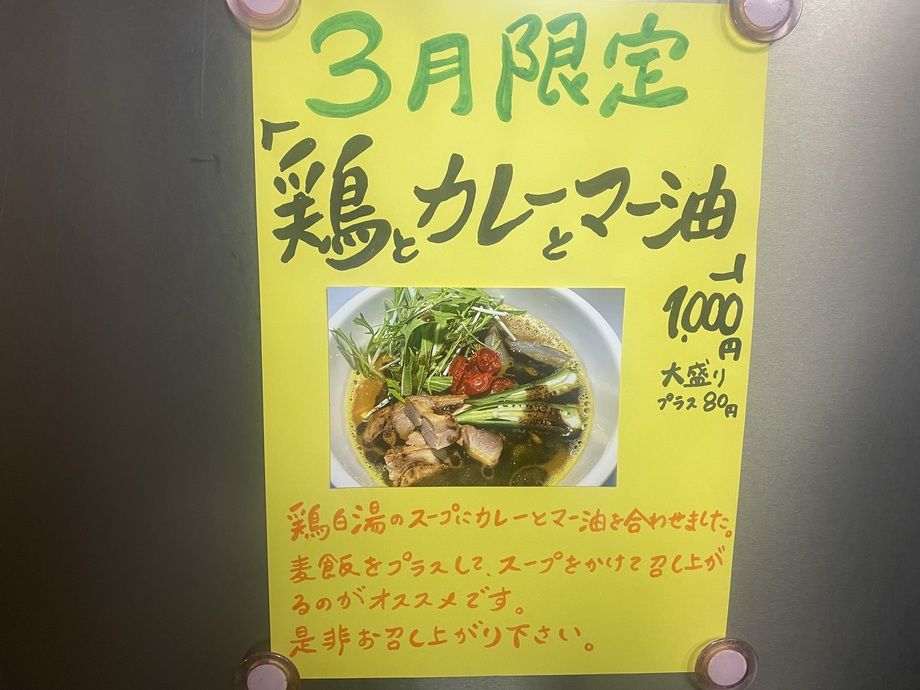 3月限定
「鶏とカレーとマー油」
1,000円
大盛り
プラス80円
鶏白湯のスープにカレーとマー油を合わせました。
麦飯をプラスして、スープをかけて召し上が
るのがオススメです。
是非お召し上がり下さい。